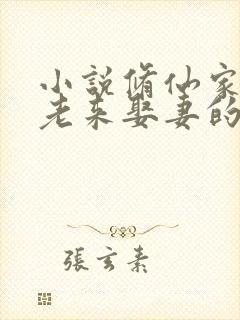 小說脩仙家
老来娶妻的
張玄素